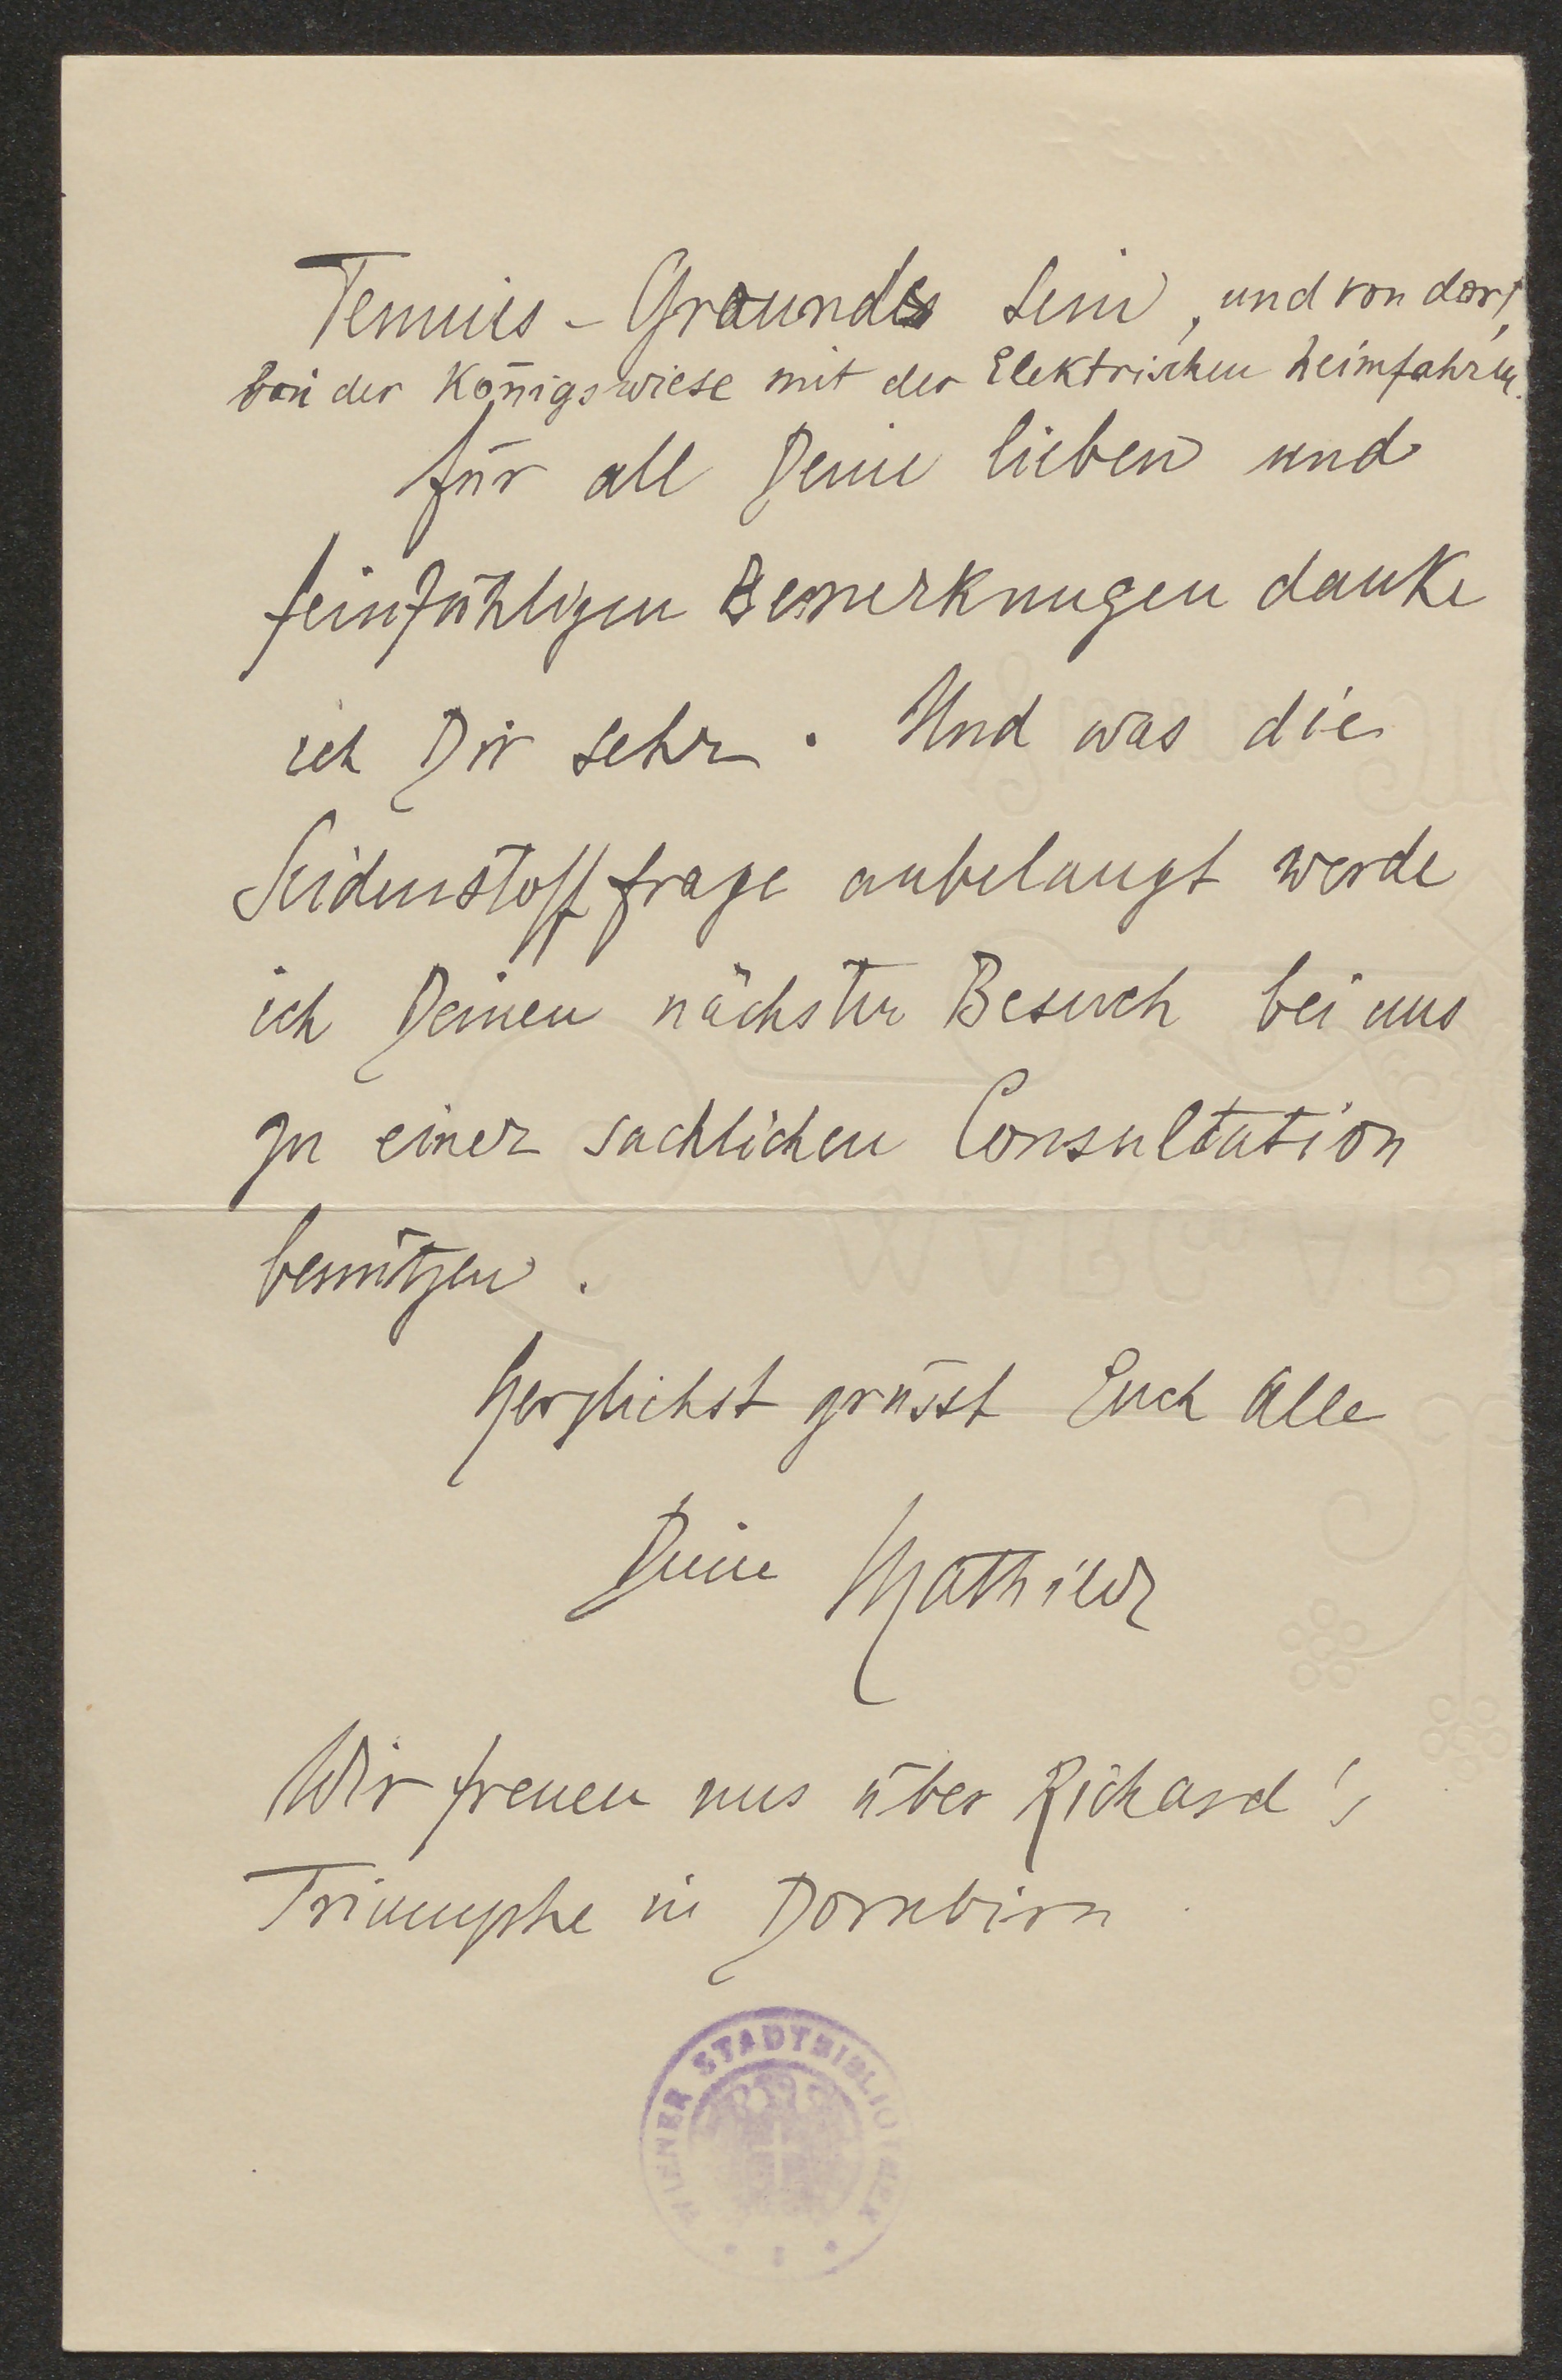 Tennis - Grounds sein, und von dort,
von der Königswiese mit der Elektrischen heimfahren.
für all Deine lieben und
feinfühligen Bemerkungen danke
ich Dir sehr. Und was die
Seidenstofffrage anbelangt werde
ich Deinen nächsten Besuch bei uns
zu einer sachlichen Consultation
benützen.
Herzlichst grüsst Euch Alle
Deine Mathilde
Wir freuen uns über Richard's
Triumphe in Dornbirn.
WIENER STADTBIBLIOTHEK